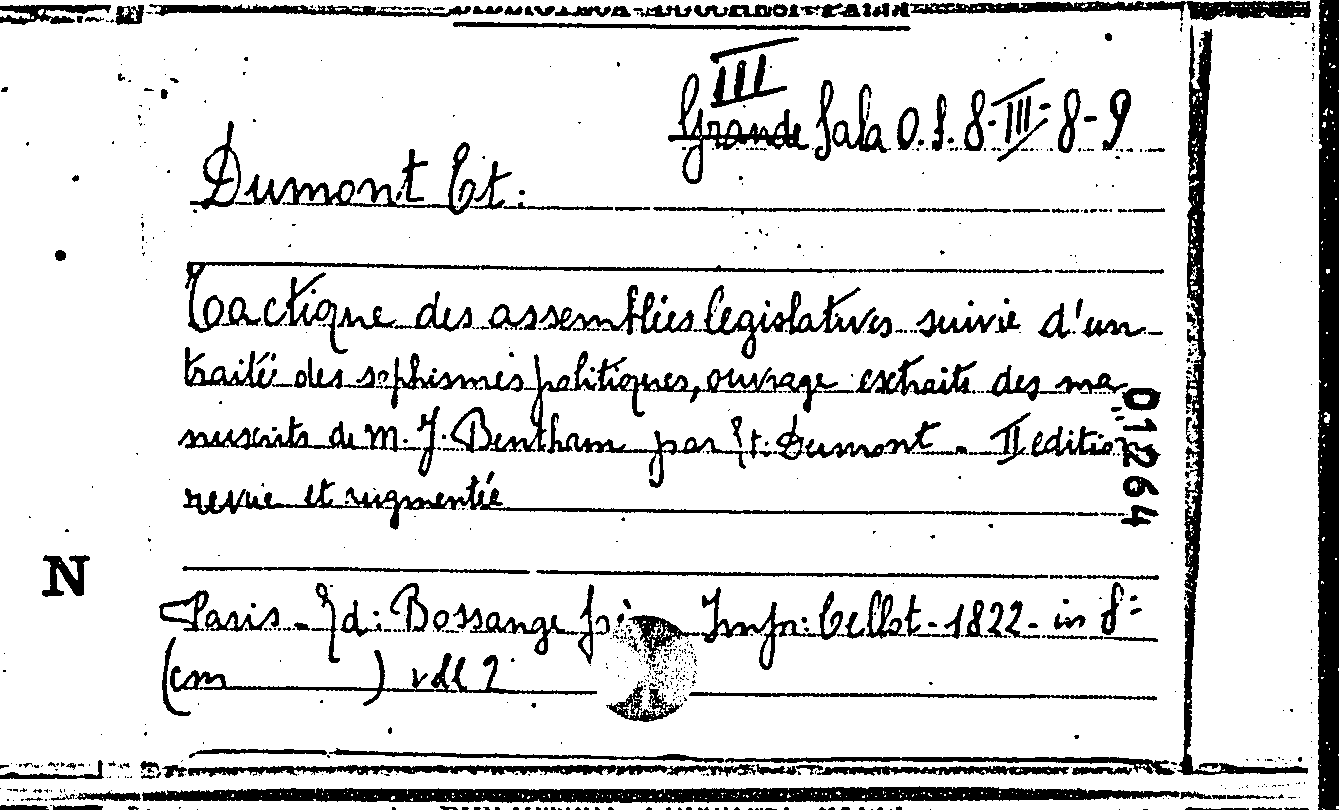 III
Grande Sala O.S. 8-III-8-9
Dumont Et:
Tactique des assemblées législatives suivie d'un
traité des sophismes politiques, ouvrage extraits des ma
nuscrits de M. J. Bentham par Et. Dumont - II edition
revue et augmentée
01264
N
Paris - Ed: Bossange Impr: Cellot - 1822 - in 8º
(cm ) vol 2